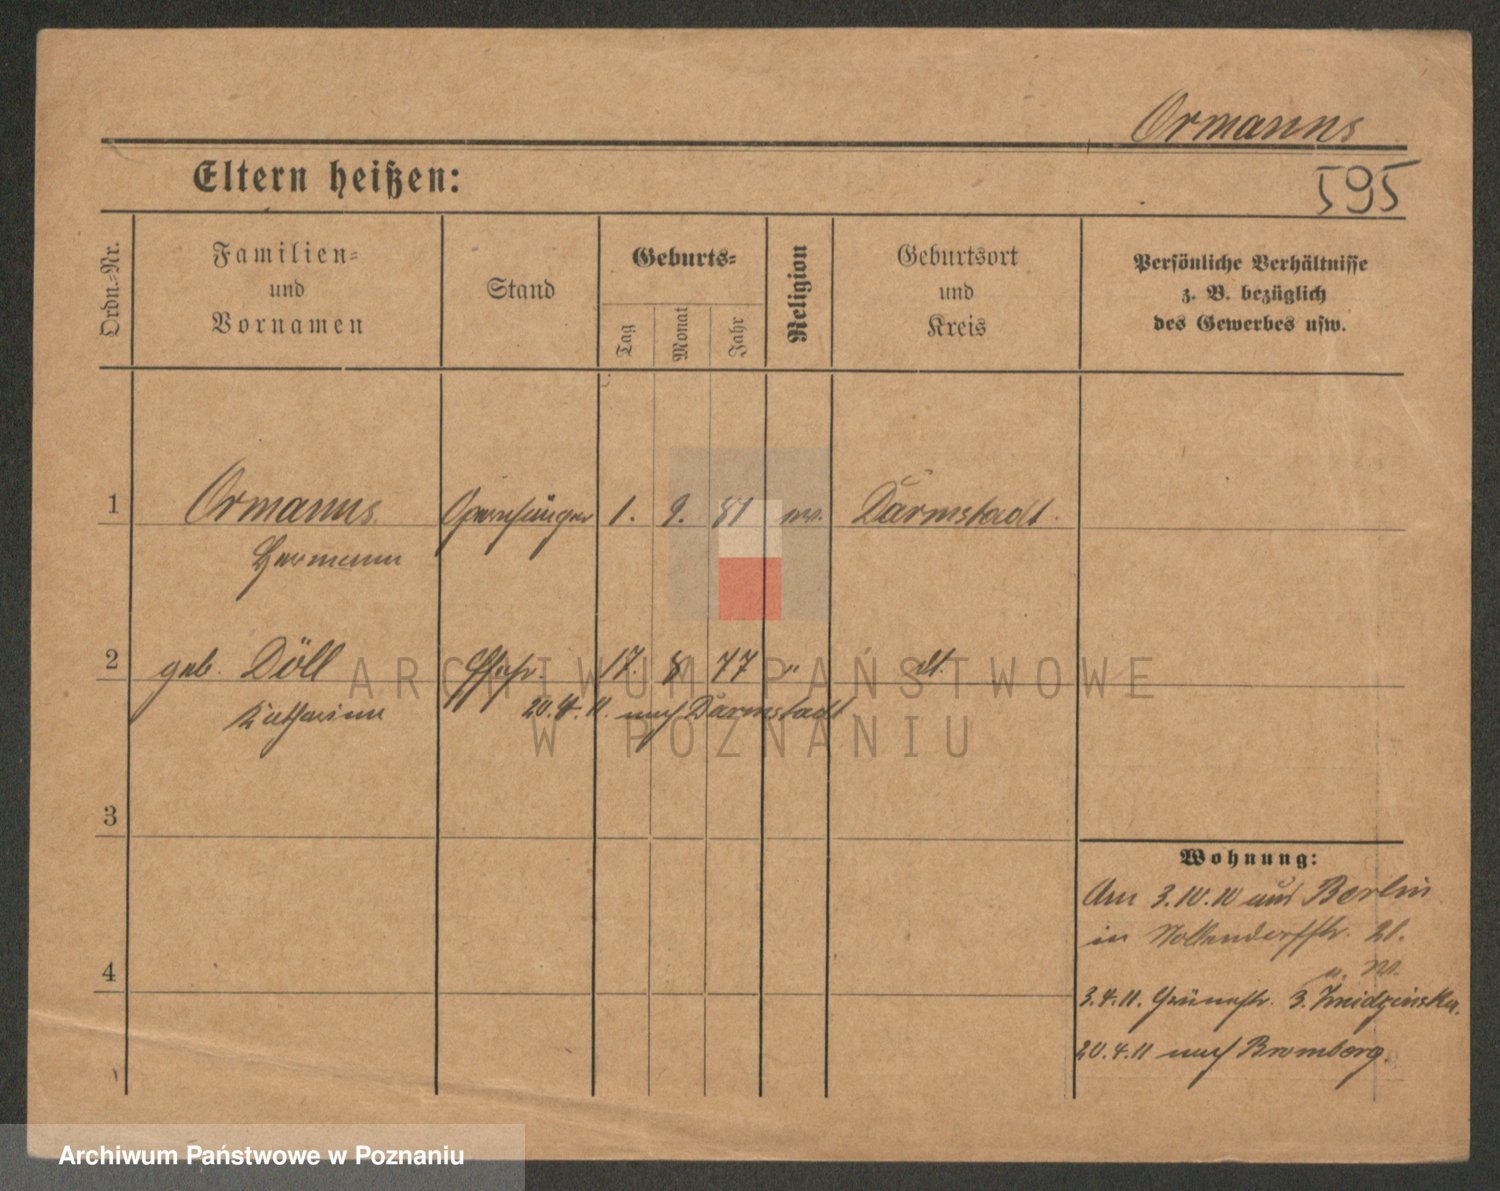 Ormanns
Eltern heißen:
595
Ordn.-Nr.
Familien-
und
Vornamen
Stand
Geburts-
Tag
Monat
Jahr
Religion
Geburtsort
und
Kreis
Persönliche Verhältnisse
z. B. bezüglich
des Gewerbes usw.
1 Ormanns Opernsänger 1. 9. 81 Darmstadt.
Hermann
2 geb. Döll Ehefr. 17. 8 77 " dt.
Katharina
20.4.11. nach Darmstadt
ARCHIWUM PAŃSTWOWE
W POZNANIU
3
4
Wohnung:
Am 3.10.10 aus Berlin
in Nollendorfstr. 21.
3.4.11. Grünestr. 3.
20.4.11 nach Bromberg.
Archiwum Państwowe w Poznaniu